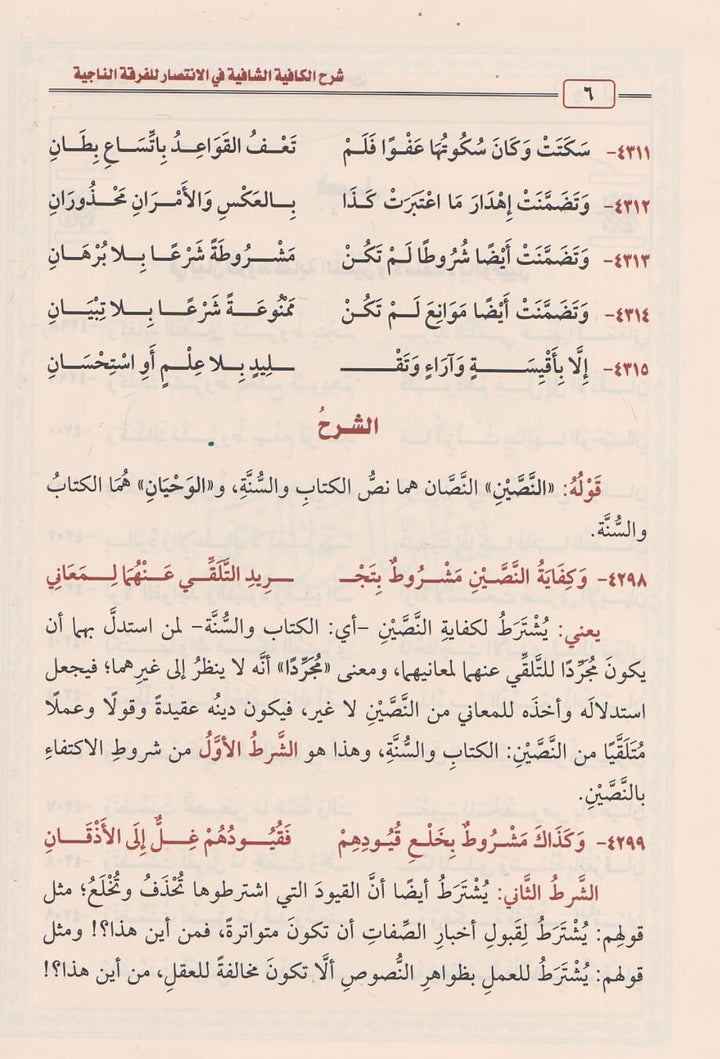 شرح الكافية الشافية في الانتصار للفرقة الناجية
٦
٤٣١١- سَكَتَتْ وَكَانَ سُكُوتُهَا عَفْوًا فَلَمْ تَعْـفُ القَوَاعِـدُ بِاتِّسَاعِ بِطَانِ
٤٣١٢- وَتَضَمَّنَتْ إِهْدَارَ مَا اعْتَبَرَتْ كَذَا بِـالعَكْسِ وَالأَمْـرَانِ مَحْـذُورَانِ
٤٣١٣- وَتَضَمَّنَتْ أَيْضًا شُرُوطًا لَمْ تَكُنْ مَشْـرُوطَةً شَرْعًـا بِـلا بُرْهَـانِ
٤٣١٤- وَتَضَمَّنَتْ أَيْضًا مَوَانِعَ لَـمْ تَكُنْ مَمْنُوعَـةً شَرْعًـا بِـلا تِبْيَـانِ
٤٣١٥- إِلَّا بِأَقْيِسَـــــةٍ وَآرَاءٍ وَتَقْـــــ ـــــلِيدٍ بِـلا عِلْـمٍ أَوِ اسْتِحْسَـانِ
الشرحُ
قَوْلُهُ: «النَّصَّيْنِ» النَّصَّان هما نصُّ الكتابِ والسُّنَّةِ، و«الوَحْيَانِ» هُمَا الكتابُ
والسُّنَّة.
٤٢٩٨- وَكِفَايَةُ النَّصَّيْنِ مَشْـرُوطٌ بِتَجْـــ ـــــرِيدِ التَّلَقِّـي عَنْهُمَا لِـمَعَانِي
يعني: يُشْتَرَطُ لكفايةِ النَّصَّيْنِ -أي: الكتاب والسُّنَّة- لمن استدلَّ بهما أن
يكونَ مُجَرِّدًا للتَّلَقِّي عنهما لمعانيهما، ومعنى «مُجَرِّدًا» أنَّه لا ينظرُ إلى غيرِهما؛ فيجعل
استدلالَه وأخذَه للمعاني من النَّصَّيْنِ لا غير، فيكون دينُه عقيدةً وقولًا وعملًا
مُتَلَقًّيًا من النَّصَّيْنِ: الكتابِ والسُّنَّةِ، وهذا هو الشَّرطُ الأوَّلُ من شروطِ الاكتفاءِ
بالنَّصَّيْنِ.
٤٢٩٩- وَكَذَاكَ مَشْـرُوطٌ بِخَلْعِ قُيُودِهِمْ فَقُيُـودُهُمْ غِـلٌّ إِلَى الأَذْقَـانِ
الشَّرطُ الثَّاني: يُشْتَرَطُ أيضًا أنَّ القيودَ التي اشترطوها تُحْذَفُ وتُخْلَعُ؛ مثل
قولهم: يُشْتَرَطُ لِقبولِ أخبارِ الصِّفاتِ أن تكونَ متواترةً، فمن أين هذا؟! ومثل
قولهم: يُشْتَرَطُ للعملِ بظواهرِ النُّصوصِ ألَّا تكونَ مخالفةً للعقلِ، من أين هذا؟!